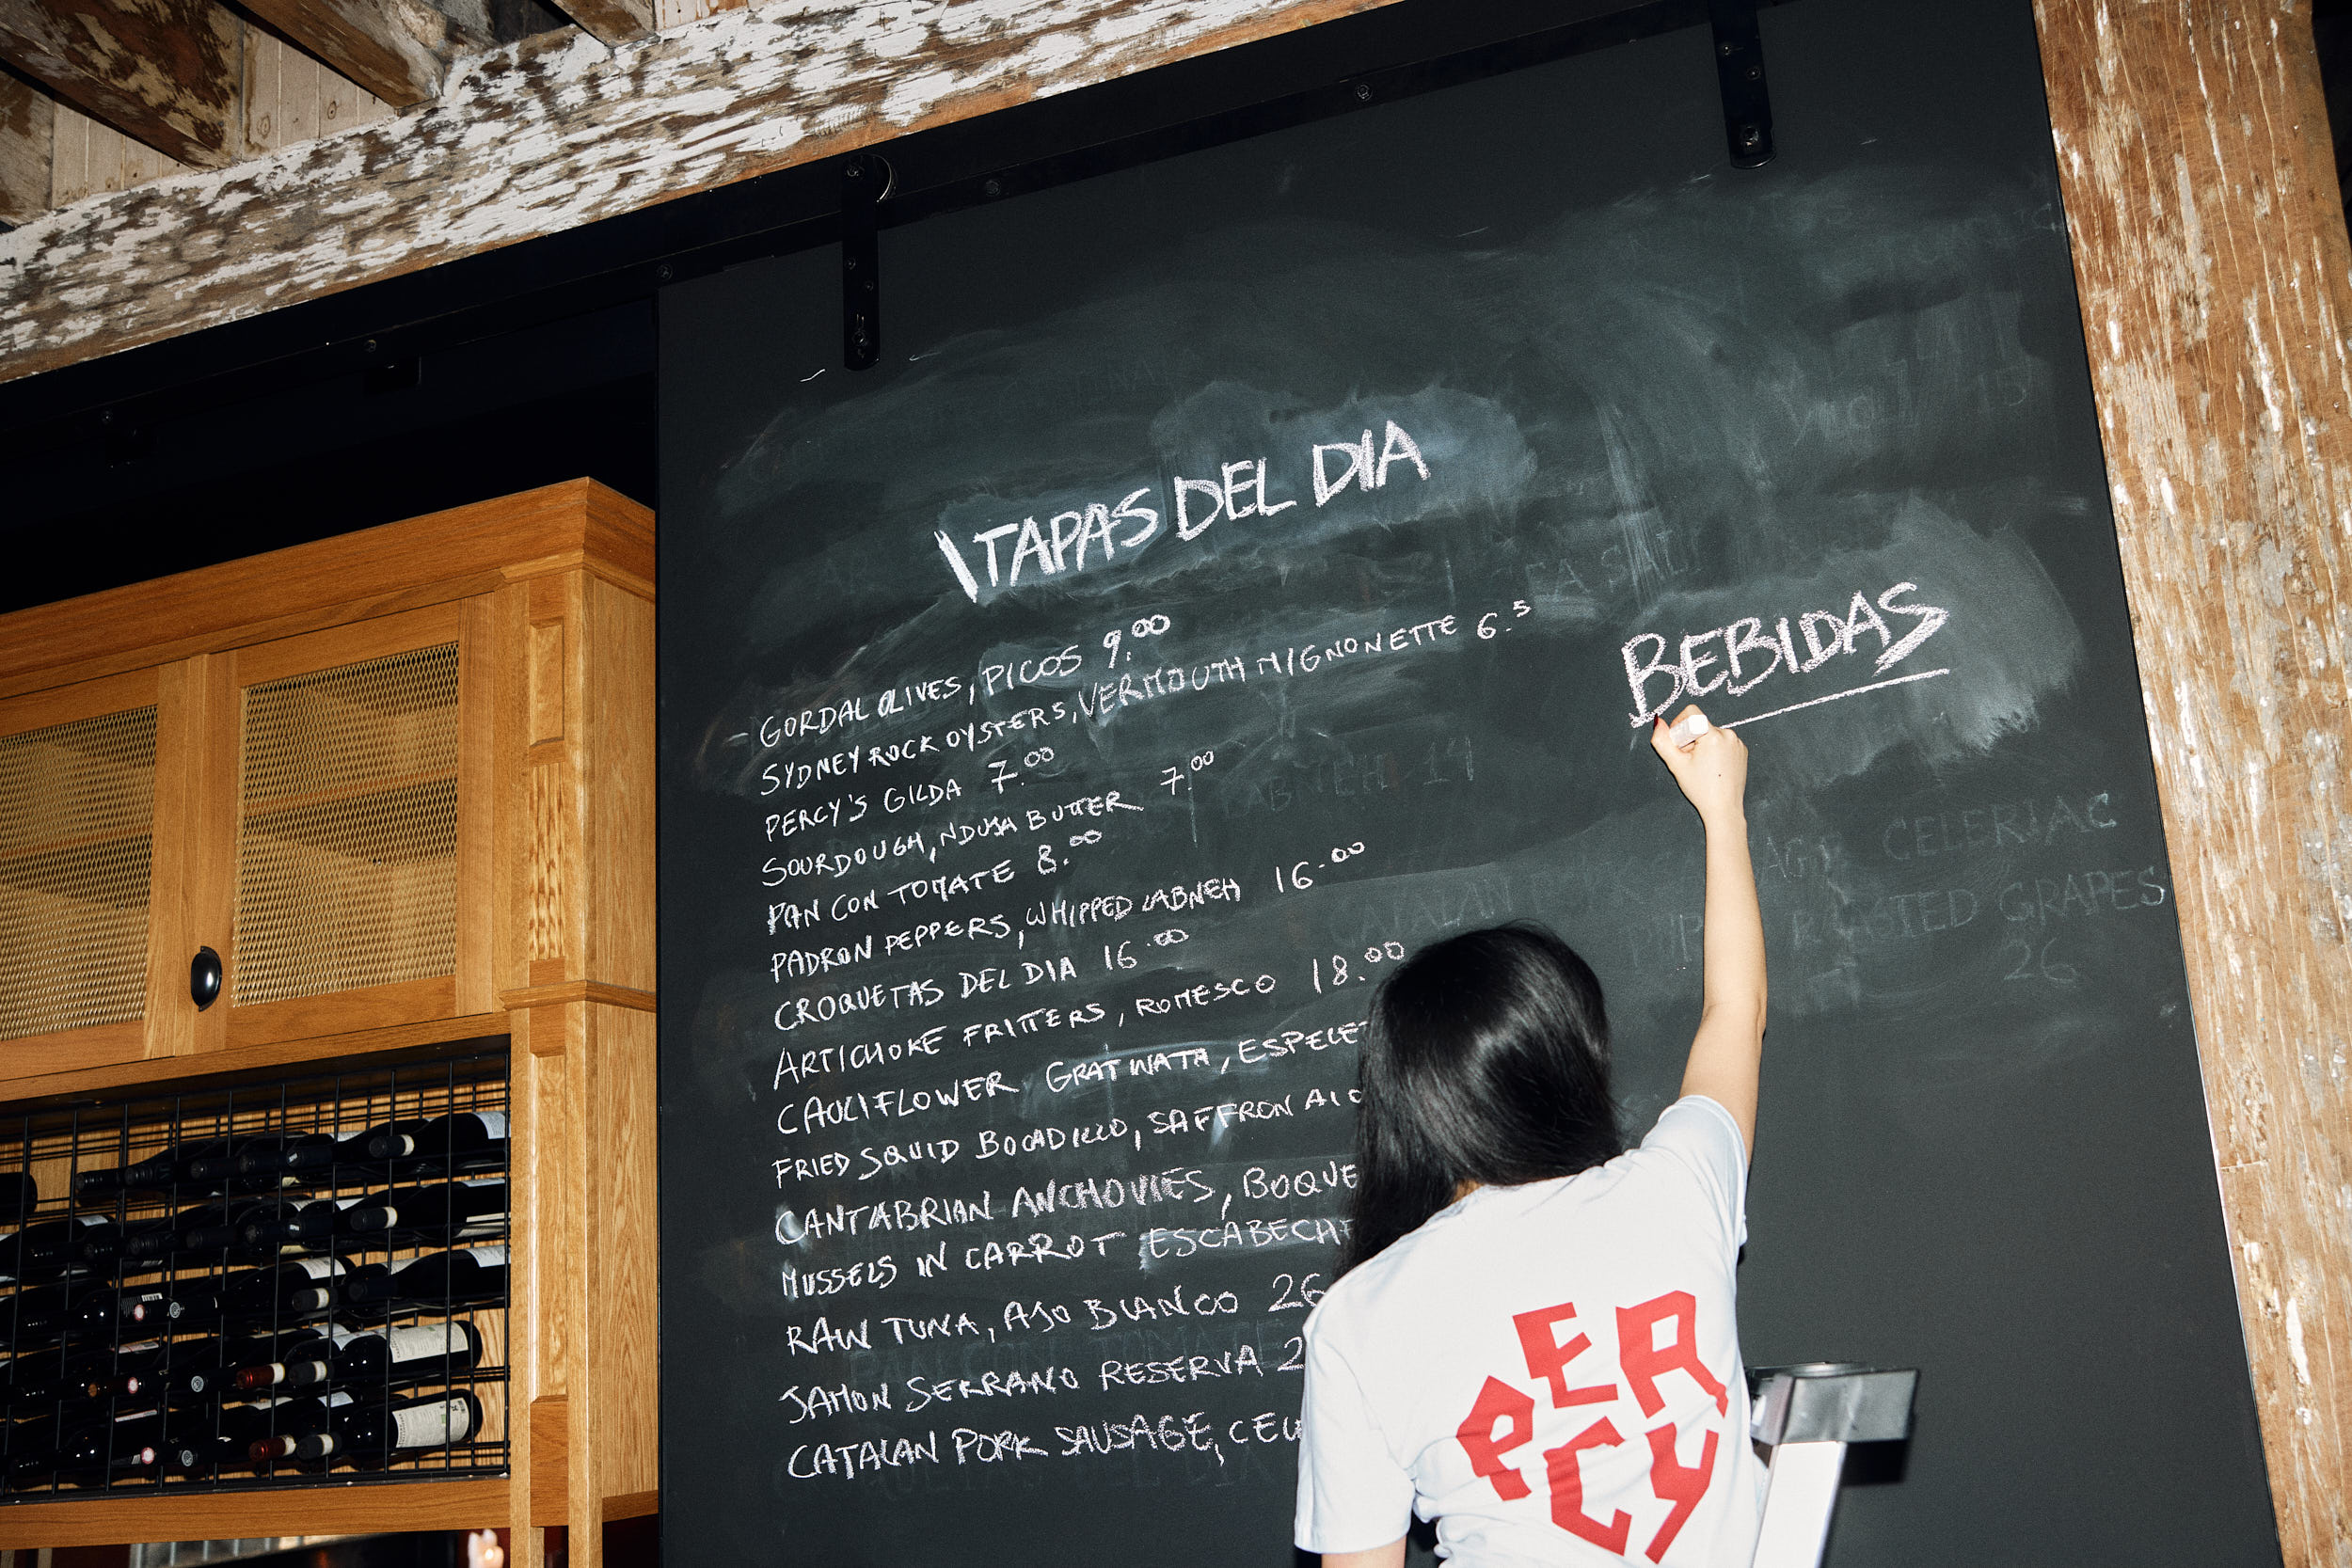 TAPAS DEL DIA
GORDAL OLIVES, PICOS 9.00
SYDNEY ROCK OYSTERS, VERMOUTH MIGNONETTE 6.5
PERCY'S GILDA 7.00
SOURDOUGH, NDUJA BUTTER 7.00
PAN CON TOMATE 8.00
PADRON PEPPERS, WHIPPED LABNEH 16.00
CROQUETAS DEL DIA 16.00
ARTICHOKE FRITTERS, ROMESCO 18.00
CAULIFLOWER GRATINATA, ESPELET
FRIED SQUID BOCADILLO, SAFFRON AIO
CANTABRIAN ANCHOVIES, BOQUE
MUSSELS IN CARROT ESCABECHE
RAW TUNA, AJO BLANCO 26
JAMON SERRANO RESERVA 2
CATALAN PORK SAUSAGE, CEL
BEBIDAS
CELERIAC
GRAPES
26
PERCY